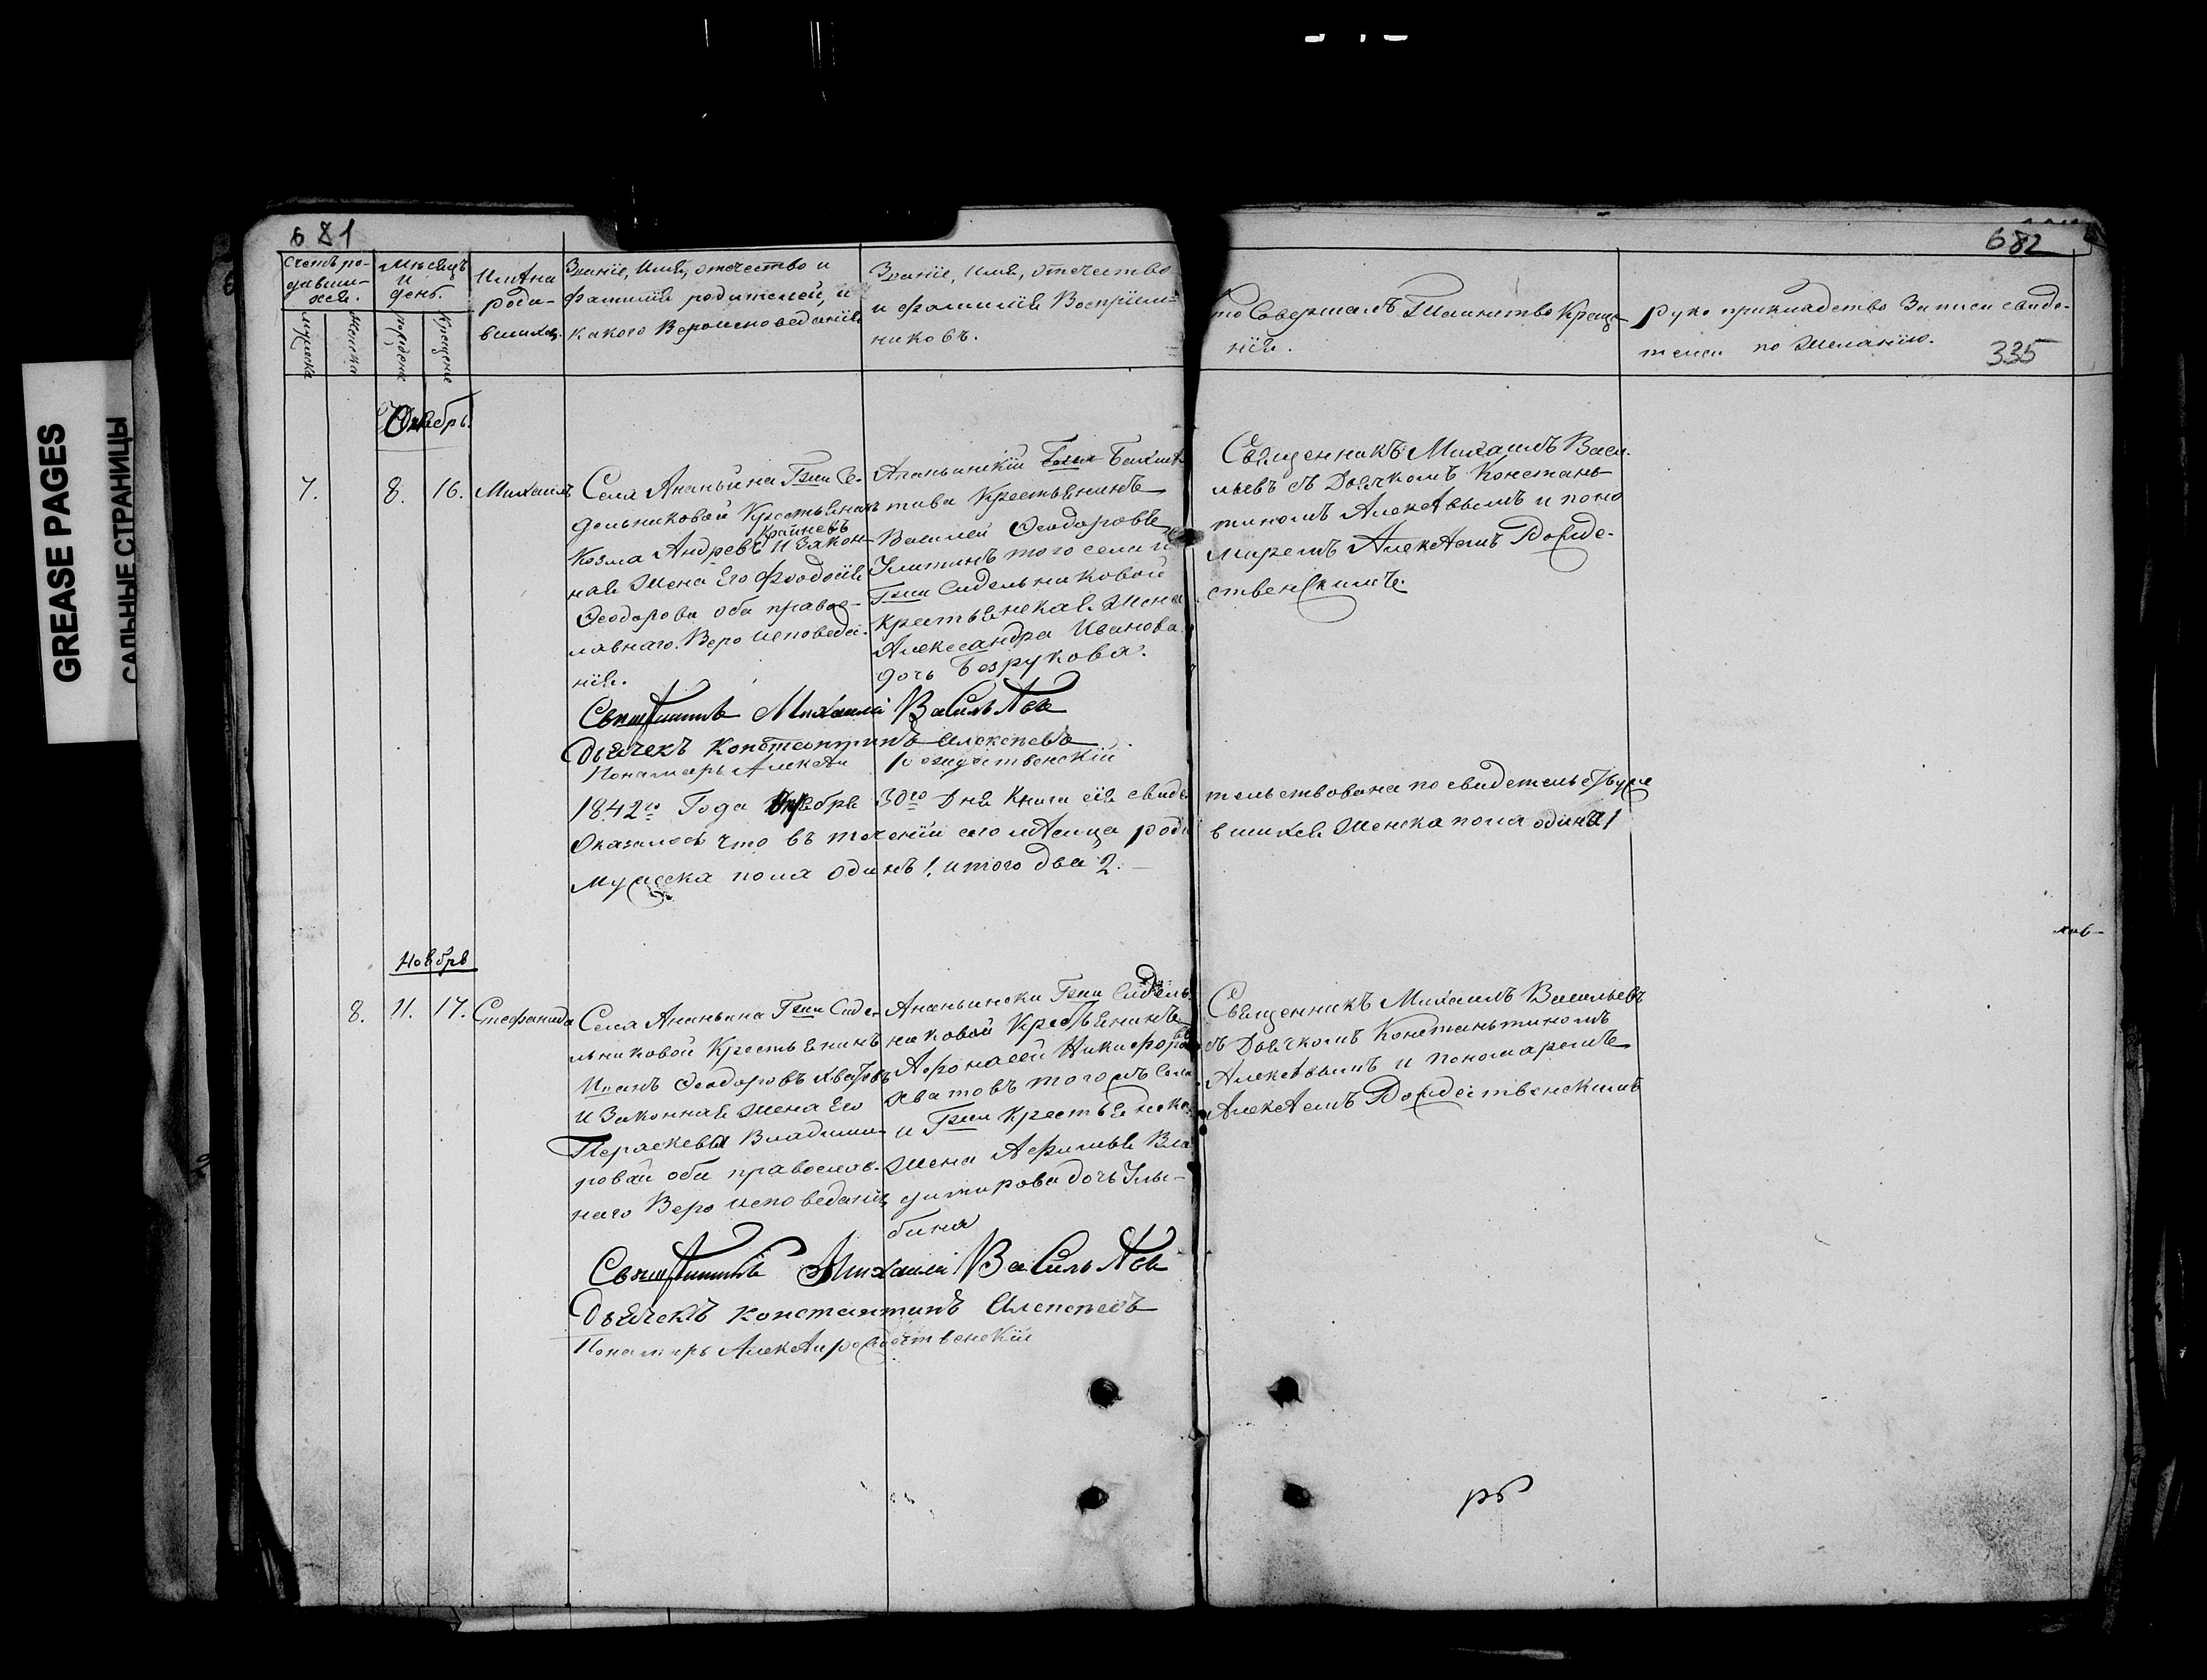 681
682
335
GREASE PAGES
САЛЬНЫЕ СТРАНИЦЫ
Счетъ ро-
дивши-
хся.
мужска
женска
Мѣсяцъ
и
день.
рожденіе
Крещеніе
Имѣна
роди-
вшихся.
Званіе, Имя, отечество и
фамилія родителей, и
какого Вероисповеданія
Званіе, имя, отечество
и фамилія Воспріем-
никовъ.
то Совершалъ Таинство Креще-
нія.
рукоприкладство Записи свидѣ-
телей по желанію.
Октябрь
7. 8. 16. Михаилъ
Села Ананьина Гжи Си-
дельниковой Крестьянинъ
Крайневъ
Козма Андревъ и закон-
ная жена Его Феодосія
Феодорова оба правос-
лавнаго Веро исповеда-
нія.
Ананьинскій
Крестьянинъ
Василей Феодоровъ
Улитинъ того села и
Гжи Сидельниковой
крестьянская жена
Александра Иванова
дочь Безрукова.
Священникъ Михаилъ Васи-
льевъ съ Дьячкомъ Констань-
тиномъ Алексѣвымъ и поно
миремъ Алексѣемъ Рожде-
ственскимъ.
Священникъ Михаилъ Васильѣвъ
Дьячекъ Константинъ Алексеевъ
Понамарь Алексѣи Рождественскій
1842го Года Октября 30го Дня Книга сія свиде тельствована по свидетельству же
Оказалось что въ теченіи сего мѣсяца роди вшихся женска пола одинъ 1
мужеска пола одинъ 1. итого два 2.
Ноябрь
8. 11. 17. Стефанида
Села Ананьина Гжи Сиде-
льниковой Крестьянинъ
Иванъ Феодоровъ Хватовъ
и Законная жена Его
Параскева Владими-
ровай оба православ-
наго Веро исповеданія
Ананьински Гжи Сидель-
никовой Крестьянинъ
Афонасей Никифоровъ
Хватовъ тогожъ Села
и Гжи Крестьянска
жена Афимья Вла
димирова дочь Улы-
бина
Священникъ Михаилъ Васильевъ
съ Дьячкомъ Констаньтиномъ
Алексѣвымъ и пономаремъ
Алексѣемъ Рождественскимъ
Священникъ Михаилъ Васильѣвъ
Дьячекъ Константинъ Алексеевъ
Понамарь Алексѣи рождественскій